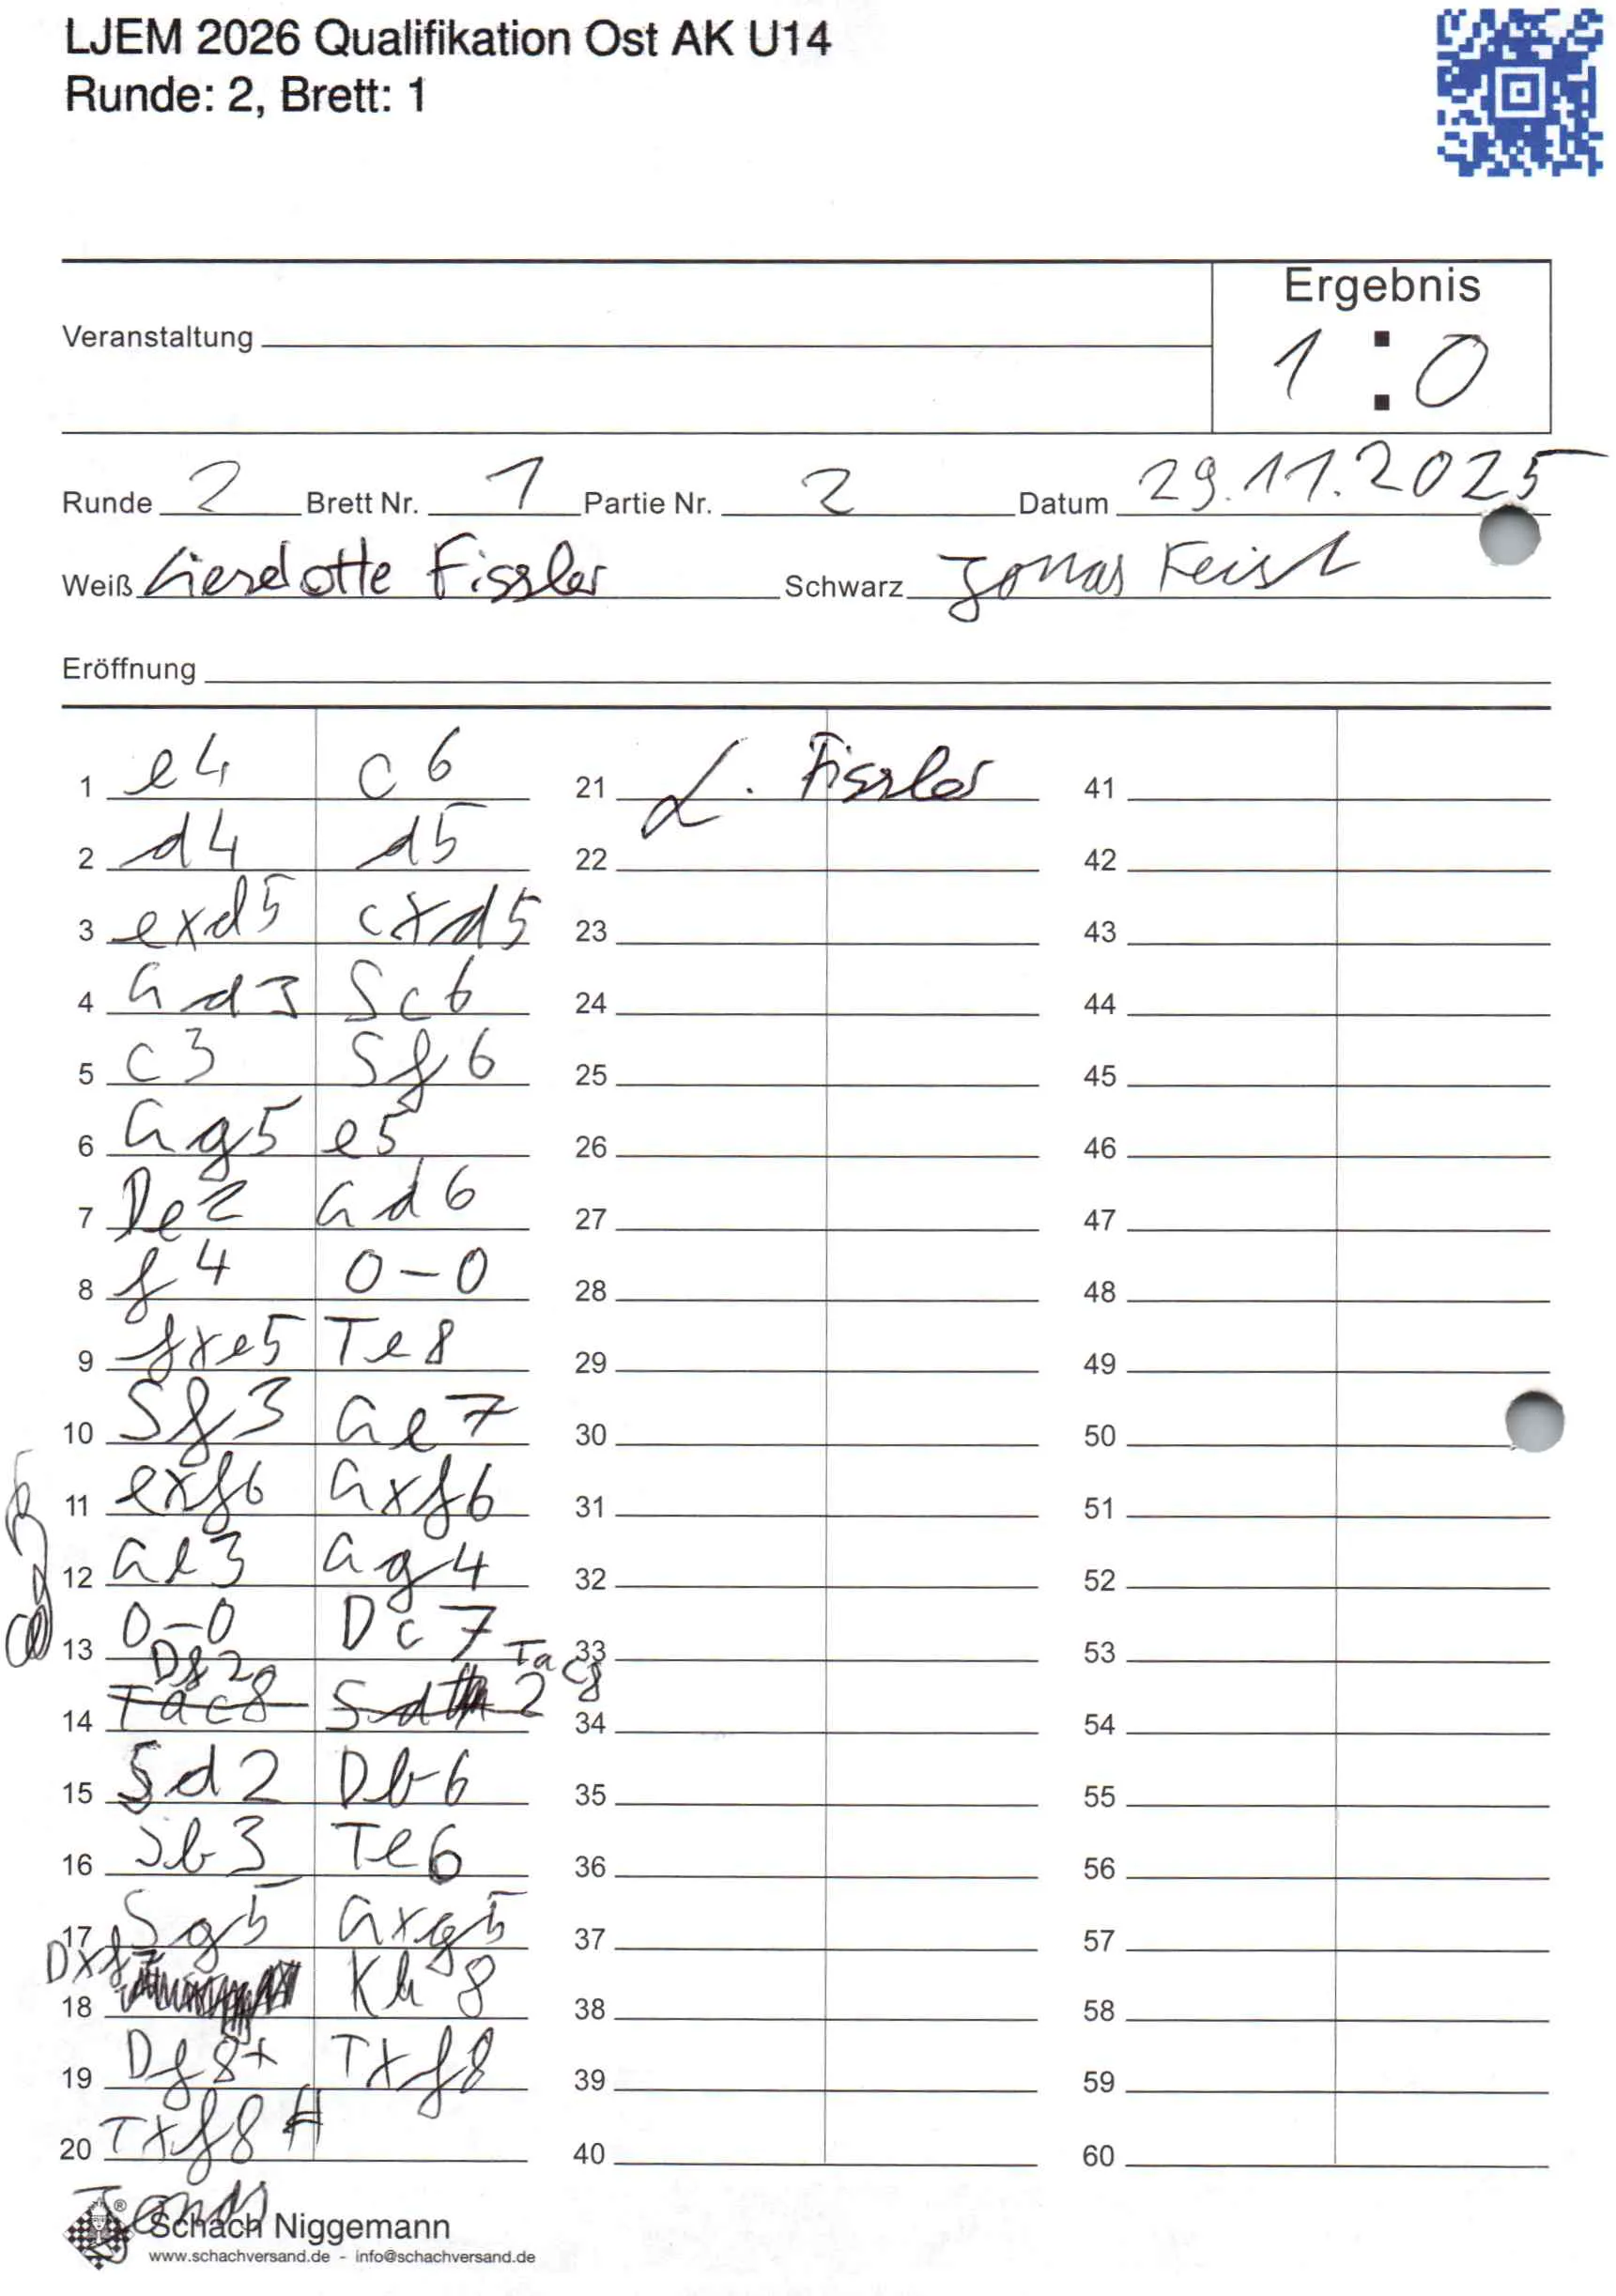 LJEM 2026 Qualifikation Ost AK U14
Runde: 2, Brett: 1
Ergebnis
Veranstaltung
1 : 0
Runde 2 Brett Nr. 1 Partie Nr. 2 Datum 29.11.2025
Weiß Lieselotte Fissler Schwarz Jonas Feist
Eröffnung
1 e4 c6 21 L. Fissler 41
2 d4 d5 22 42
3 exd5 cxd5 23 43
4 Ld3 Sc6 24 44
5 c3 Sf6 25 45
6 Lg5 e5 26 46
7 De2 Ld6 27 47
8 f4 0-0 28 48
9 fxe5 Te8 29 49
10 Sf3 Le7 30 50
11 exf6 Lxf6 31 51
12 Le3 Lg4 32 52
13 0-0 Dc7 33 53
Df2 Tac8
14 Tac8 34 54
15 Sd2 Db6 35 55
16 Sb3 Te6 36 56
17 Sg5 Lxg5 37 57
18 Dxf7 Kh8 38 58
19 Df8+ Txf8 39 59
20 Txf8# 40 60
Jonas
Schach Niggemann
www.schachversand.de - info@schachversand.de